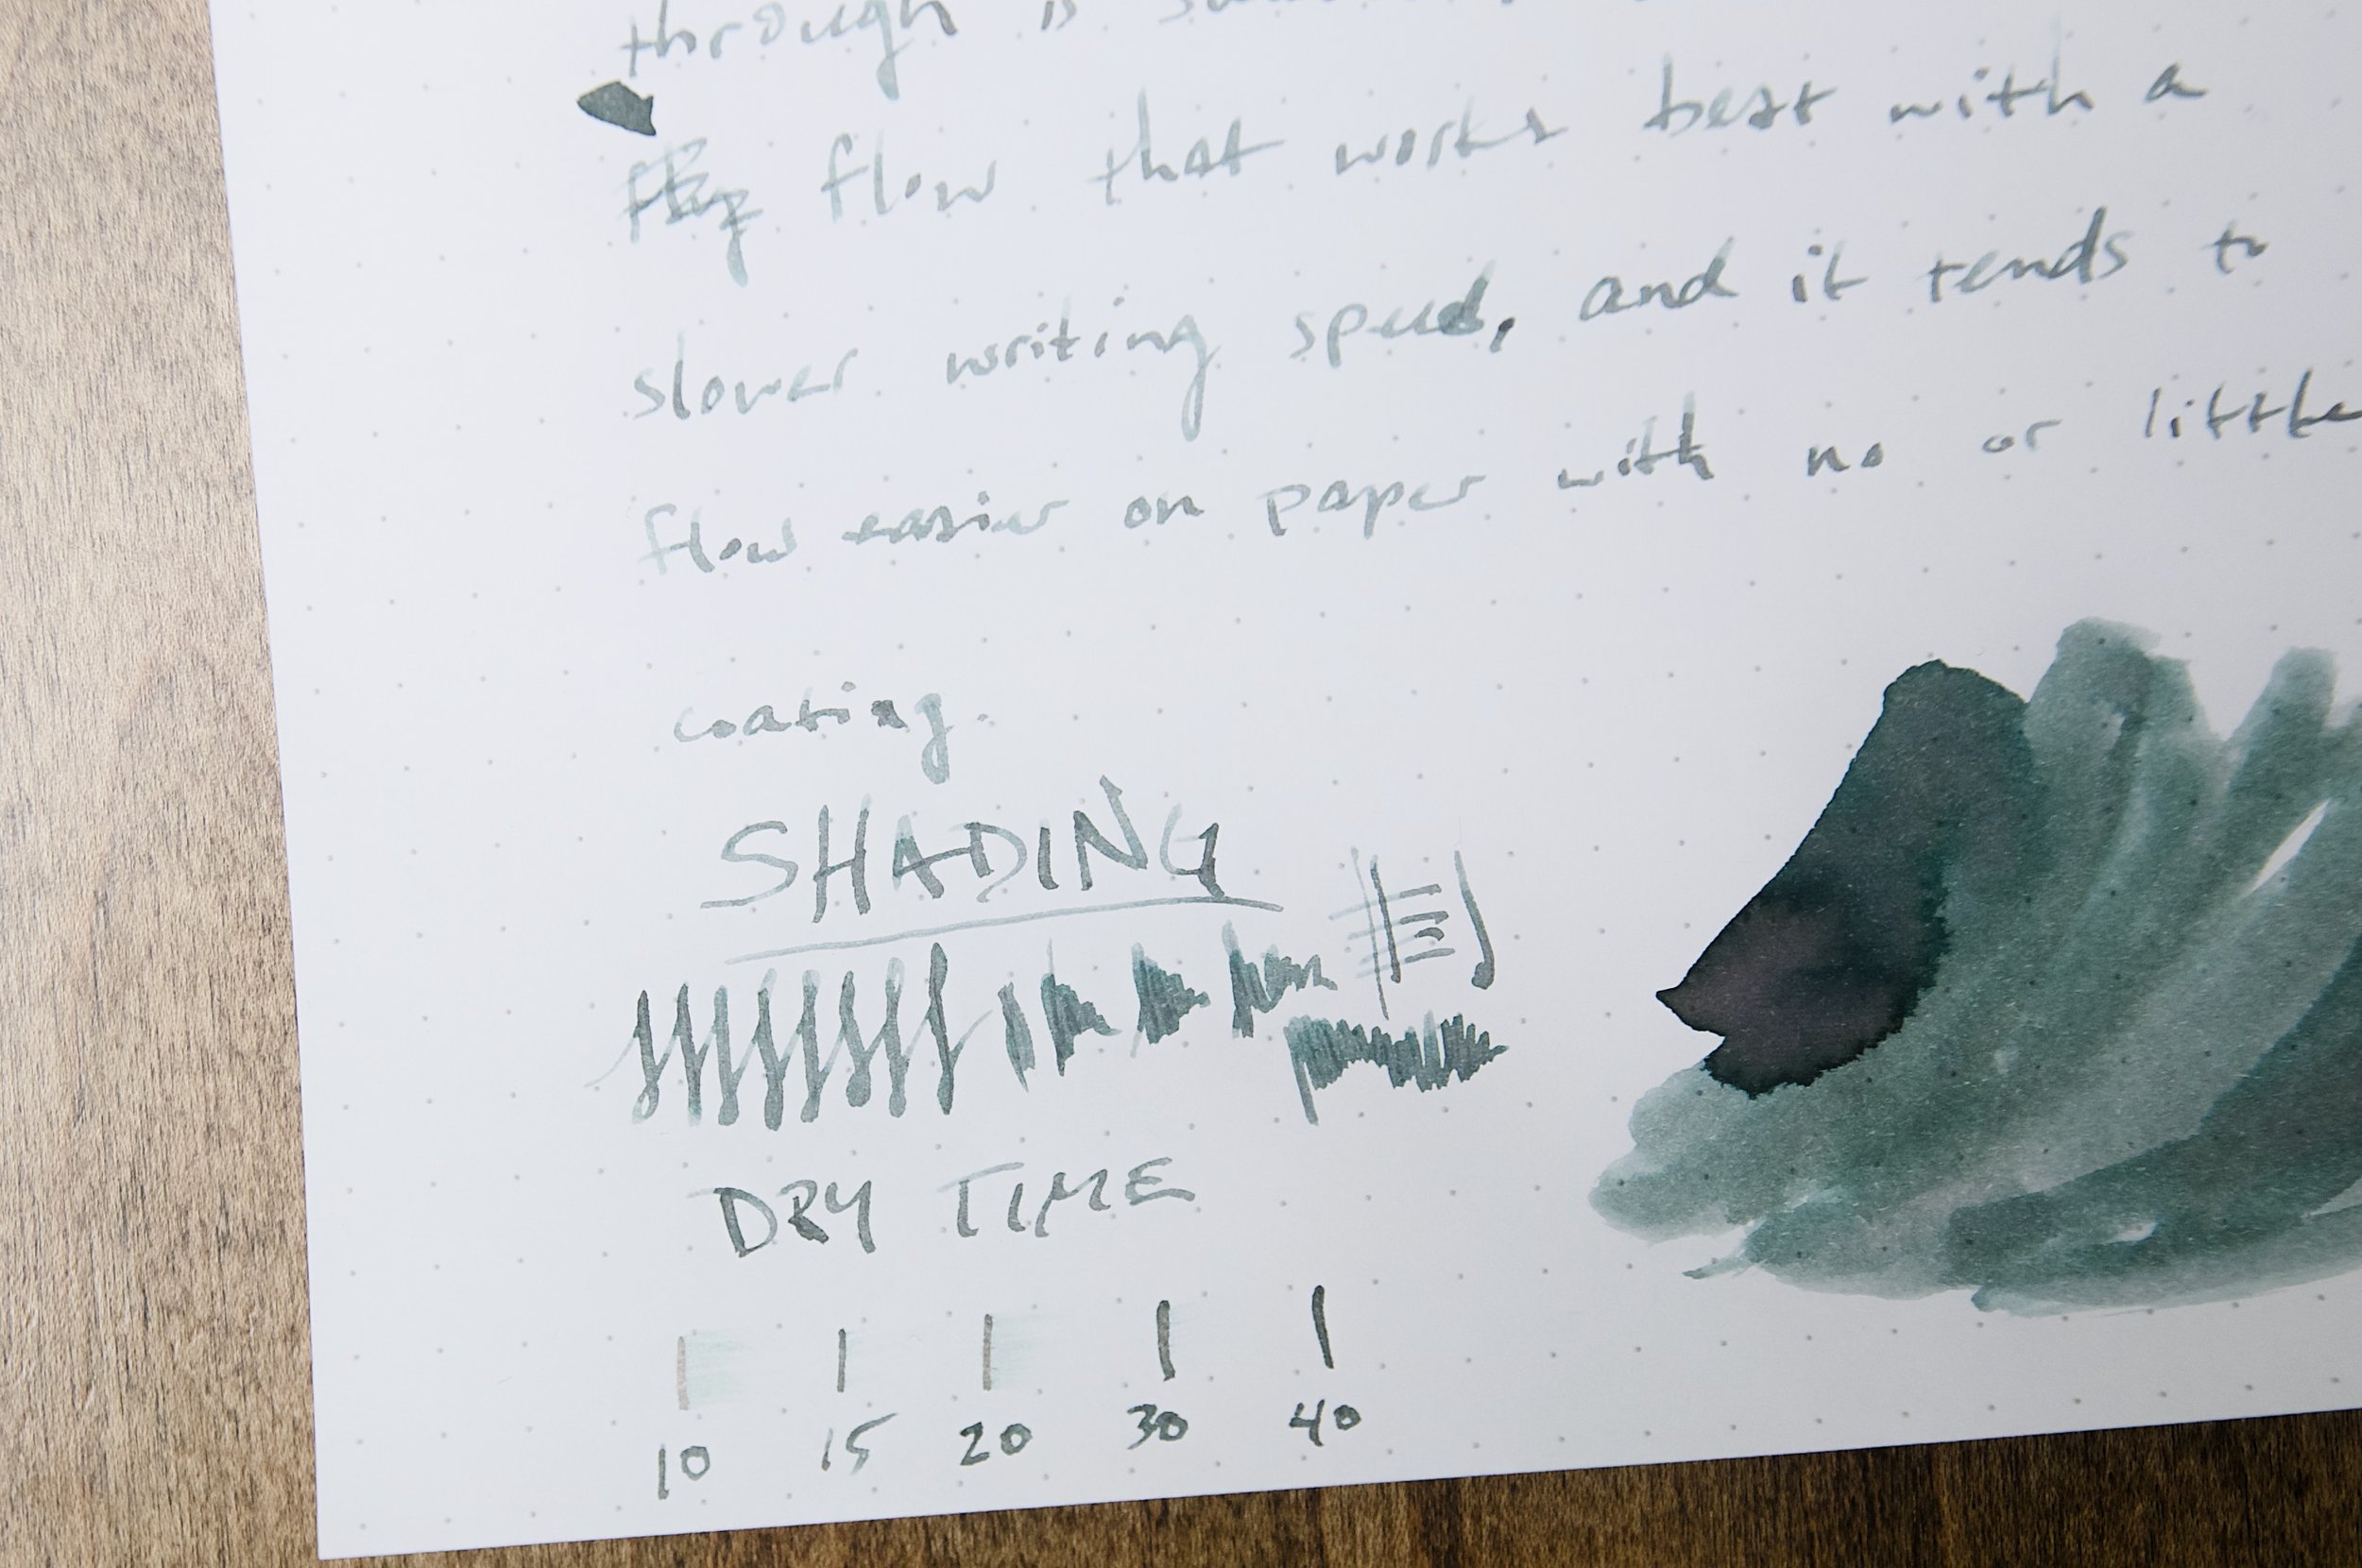 through is
flow that works best with a
slower writing speed, and it tends to
flow easier on paper with no or little
coating.
SHADING
DRY TIME
10 15 20 30 40